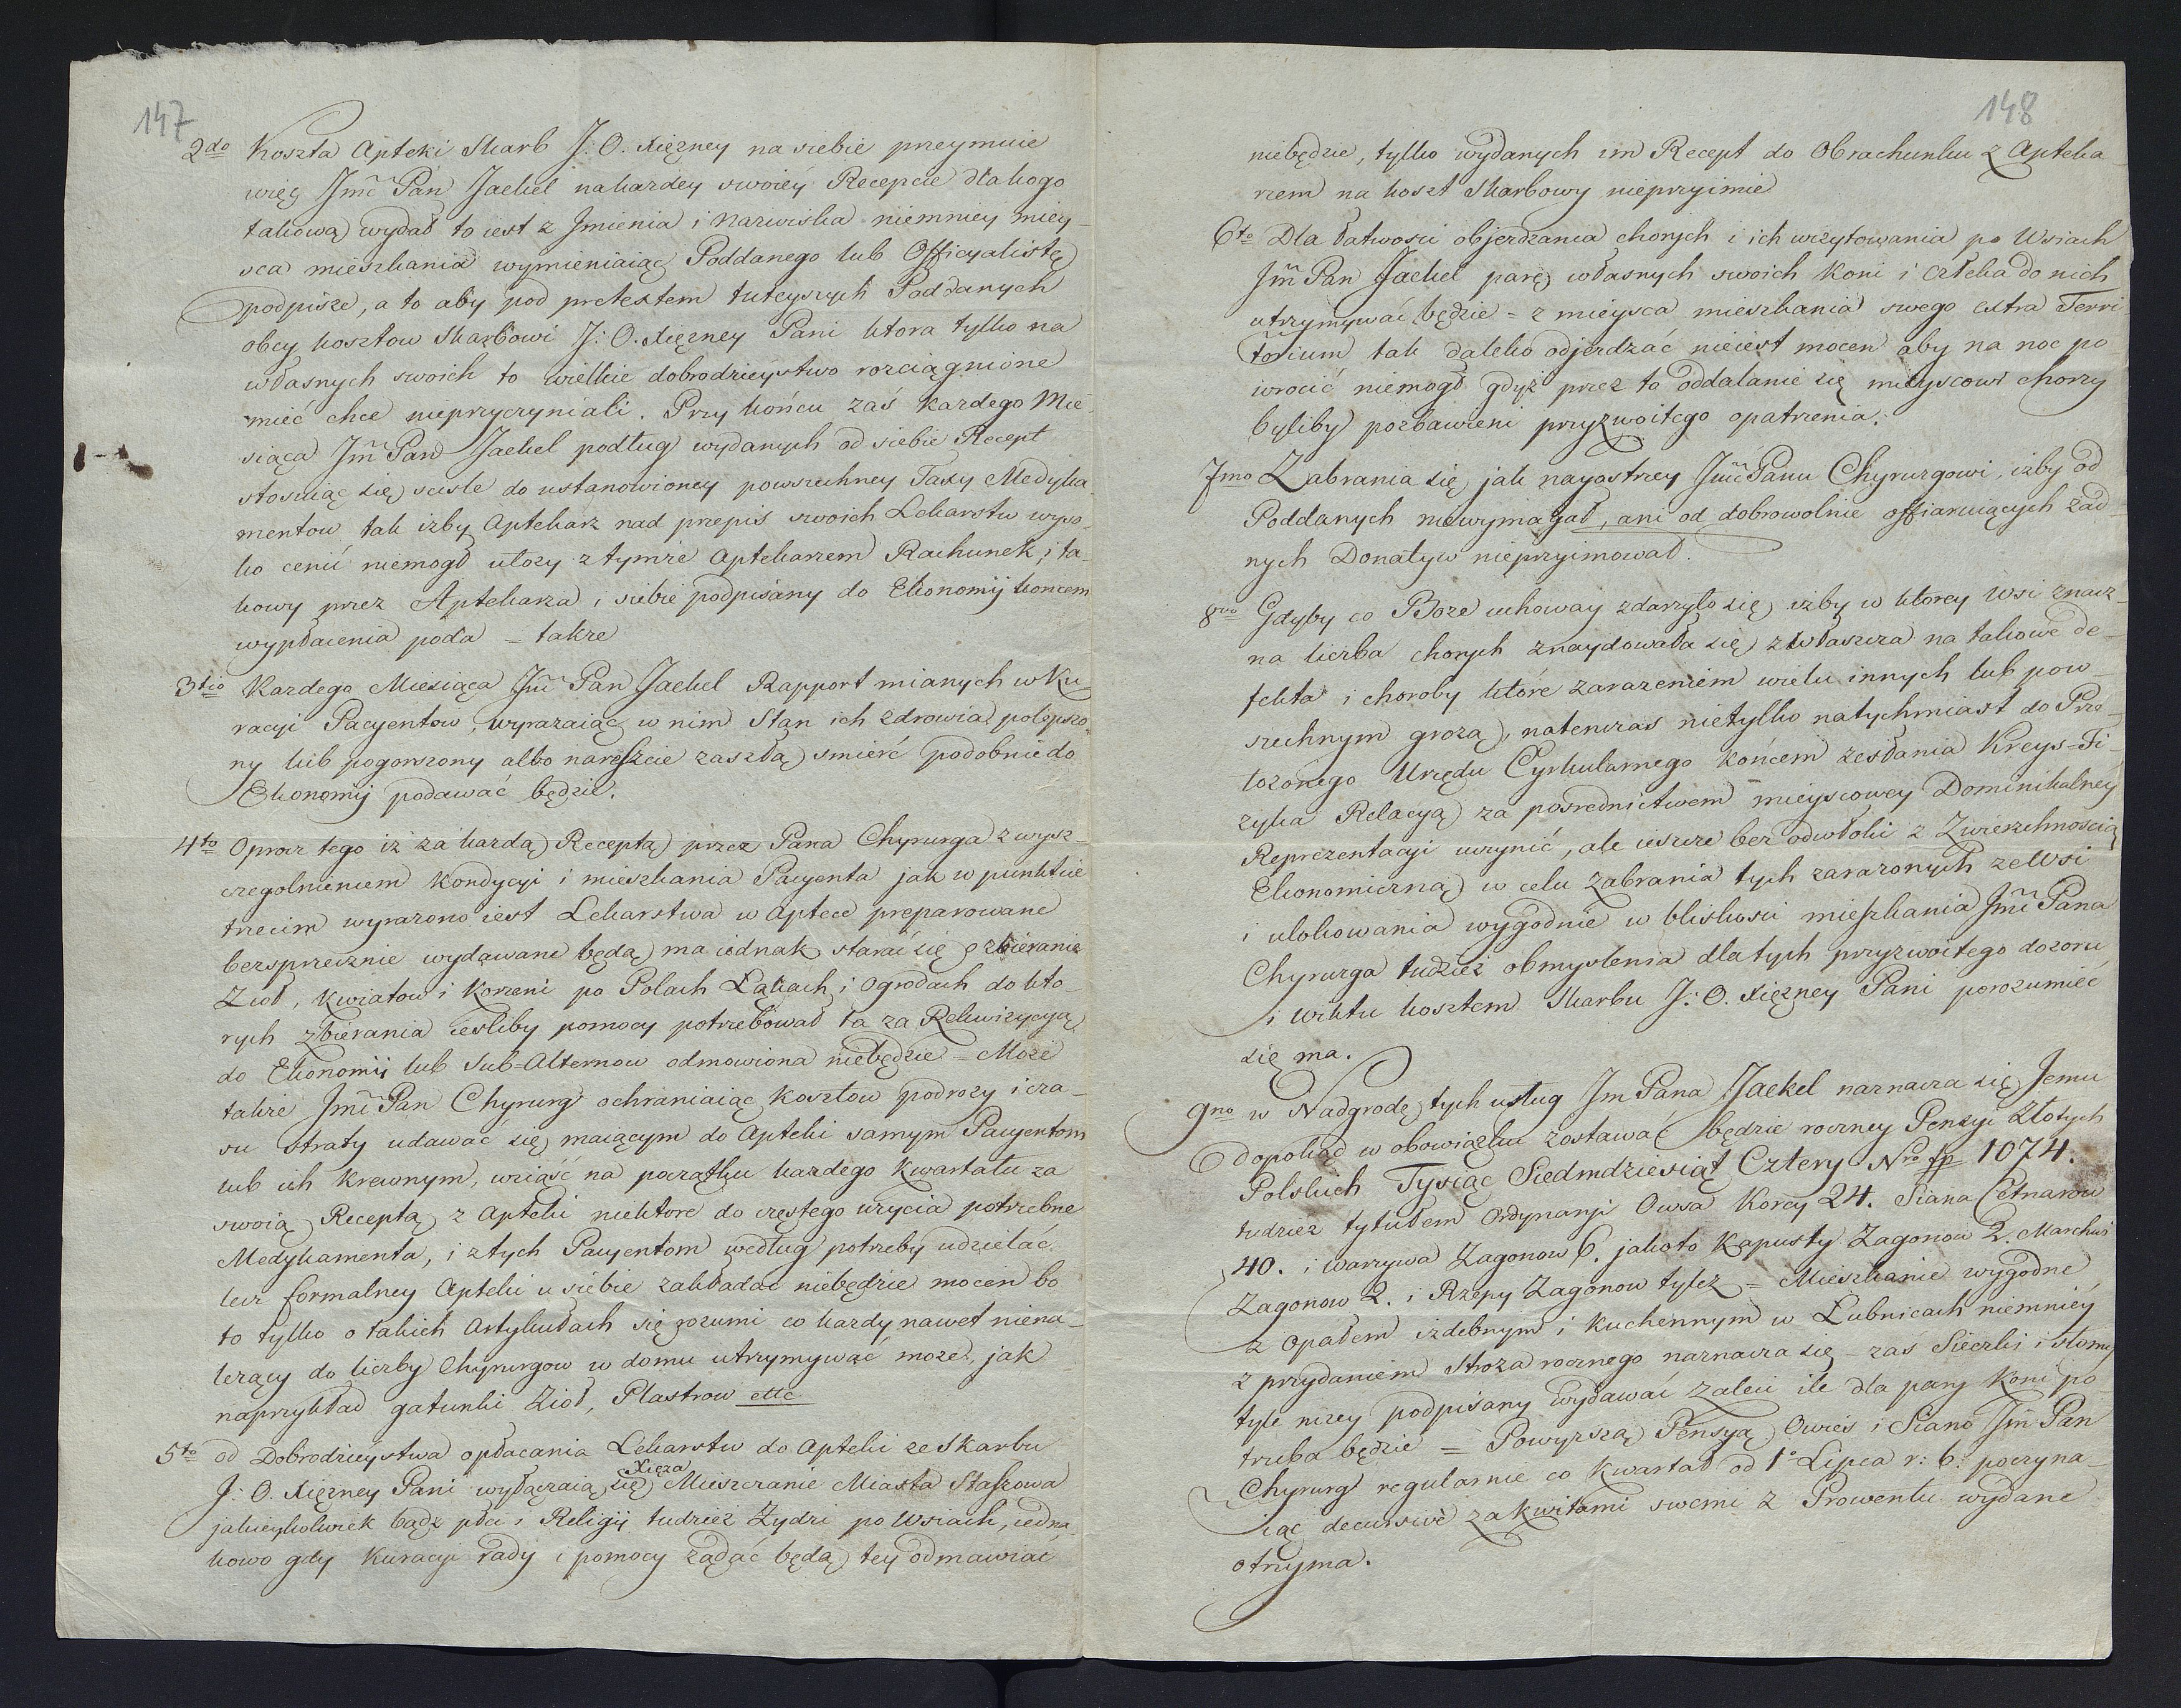 147
2do Koszta Apteki Skarb J: O. Xięzney na siebie przeymuie
więc Jmć Pan Jaekel na kazdey swoiey Recepcie dla kogo
takową wydał to iest z Jmienia i Nazwiska niemniey miey-
sca mieszkania wymieniaiąc Poddanego lub Officyalistę
podpisze, a to aby pod pretextem tuteyszych Poddanych
obcy kosztow Skarbowi J: O. Xięzney Pani ktora tylko na
własnych swoich to wielkie dobrodzieystwo rozciągnione
mieć chce nieprzyczyniali. Przy końcu zaś kazdego Mie-
siąca Jmć Pan Jaekel podług wydanych od siebie Recept
stosuiąc się scisle do ustanowioney powszechney Taxy Medyka-
mentow tak izby Aptekarz nad przepis swoich Lekarstw wyso-
ko cenić niemogł ułozy z tymze Aptekarzem Rachunek, i ta-
kowy przez Aptekarza i siebie podpisany do Ekonomij koncem
wypłacenia poda = takze
3tio Kazdego Miesiąca Jmć Pan Jaekel Rapport mianych w Ku
racyi Pacyentow, wyrazaiąc w nim Stan ich zdrowia polepszo
ny lub pogorszony albo nareszcie zaszłą smierć podobnie do
Ekonomij podawać będzie.
4to Oprocz tego iz za kazdą Receptą przez Pana Chyrurga z wysz-
czegolnieniem Kondycyi i mieszkania Pacyenta jak w punktcie
trzecim wyrazono iest Lekarstwa w Aptece preparowane
bezsprzecznie wydawane będą, ma iednak starać się o zbieranie
Zioł, Kwiatow i Korzeni po Polach Łąkach, i Ogrodach do kto-
rych zbierania iesliby pomocy potrzebował ta za Rekwizycyą
do Ekonomij lub Sub=Alternow odmowiona niebędzie = Moze
takze Jmć Pan Chyrurg ochraniaiąc kosztow podrozy i cza-
su straty udawać się maiącym do Apteki samym Pacyentom
lub ich Krewnym, wziąść na początku kazdego Kwartału za
swoią Receptą z Apteki niektore do częstego uzycia potrzebne
Medykamenta, i z tych Pacyentom według potrzeby udzielać.
lecz formalney Apteki u siebie zakładać niebędzie mocen bo
to tylko o takich Artykułach się rozumi co kazdy nawet niena-
lezący do liczby Chyrurgow w domu utrzymywać moze, jak
naprzykład gatunki Zioł, Plastrow ettc
5to od Dobrodzieystwa opłacania Lekarstw do Apteki ze Skarbu
Xięza
J: O. Xięzney Pani wyłączaią się Mieszczanie Miasta Staszowa
jakieykolwiek bądz płci i Religij tudziez Zydzi po Wsiach, iedna
kowo gdy Kuracyi rady i pomocy ządać będą tey odmawiać
148
niebędzie, tylko wydanych im Recept do Obrachunku z Apteka
rzem na koszt Skarbowy nieprzyimie
6to Dla łatwosci objezdzania chorych i ich wizytowania po Wsiach
Jmć Pan Jaekel parę własnych swoich Koni i Człeka do nich
utrzymywać będzie = z mieysca mieszkania swego extra Terri
torium tak daleko odjezdzać nieiest mocen aby na noc po
wrocić niemogł gdyż przez to oddalanie się mieyscowi chorzy
byliby pozbawieni przyzwoitego opatrzenia.
7mo Zabrania się jak nayostrzey Jmć Panu Chyrurgowi, izby od
Poddanych niewymagał, ani od dobrowolnie offiaruiących zad
nych Donatyw nieprzyimował.
8vo Gdyby co Boze uchoway zdarzyło się izby w ktorey Wsi znacz-
na liczba chorych znaydowała się zwłaszcza na takowe de-
fekta i choroby które zarazeniem wielu innych lub pow-
szechnym grozą, natenczas nietylko natychmiast do Prze-
łozonego Urzędu Cyrkularnego końcem zesłania Kreys=Fi-
zyka Relacyą za posrednictwem mieyscowey Dominikalney
Reprezentacyi uczynić, ale ieszcze bez odwłoki z Zwierzchnoscią
Ekonomiczną w celu Zabrania tych zarazonych ze Wsi
i ulokowania wygodnie w bliskosci mieszkania Jmć Pana
Chyrurga tudziez obmyslenia dla tych przyzwoitego dozoru
i Wiktu kosztem Skarbu J: O. Xięzney Pani porozumieć
się ma.
9no w Nadgrodę tych usług Jm Pana Jaekel naznacza się Jemu
dopokąd w obowiązku zostawać będzie roczney Pensyi Złotych
Polskich Tysiąc Siedmdziesiąt Cztery Nro fp 1074.
tudziez tytułem Ordynaryi Owsa Korcy 24. Siana Cetnarow
40. i warzywa Zagonow 6. jakoto Kapusty Zagonow 2. Marchwi
Zagonow 2. i Rzepy Zagonow tylez = Mieszkanie wygodne
z Opałem izdebnym i Kuchennym w Łubnicach niemniey
z przydaniem Stroza rocznego naznacza się = zaś Sieczki i słomy
tyle nizey podpisany wydawać Zaleci ile dla pary Koni po
trzeba będzie = Powyzszą Pensyą, Owies i Siano Jmć Pan
Chyrurg regularnie co Kwartał od 1o Lipca r: b: poczyna-
iąc decursive za kwitami swemi z Prowentu wydane
otrzyma.